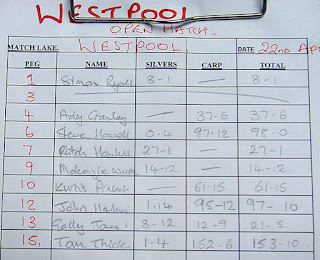 WESTPOOL
OPEN MATCH.
MATCH LAKE. WESTPOOL DATE 22nd Apr
PEG NAME SILVERS CARP TOTAL
1 Simon Ryall 8-1 — 8-1
3
4 Ady Crawley — 37-6 37-6
6 Steve Howell 0.4 97-12 98-0
7 Ritch Hawkins 27-1 — 27-1
9 14-12 — 14-12
10 Kurtis — 61-15 61.15
12 John 1.14 95-12 97-10
13 8-12 12-9 21.5
15. 1-4 152-6 153-10